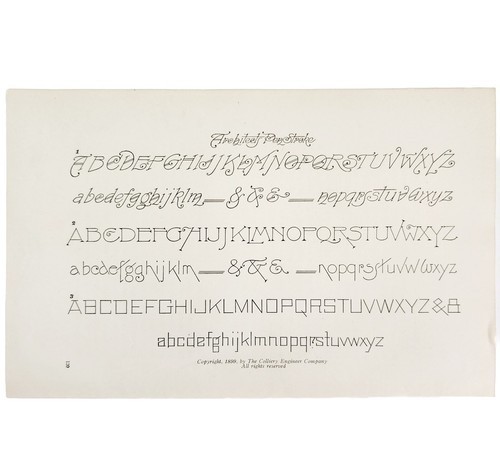 Architect Pen Stroke
1
ABCDEFGHIJKLMNOPQRSTUVWXYZ
abcdefgghijklm — & & & — nopqrstuvwxyz
2
ABCDEFGHIJKLMNOPQRSTUVWXYZ
abcdefgghijklm — & & & — nopqrstuvwxyz
3
ABCDEFGHIJKLMNOPQRSTUVWXYZ & &
abcdefghijklmnopqrstuvwxyz
Copyright, 1899, by The Colliery Engineer Company
All rights reserved